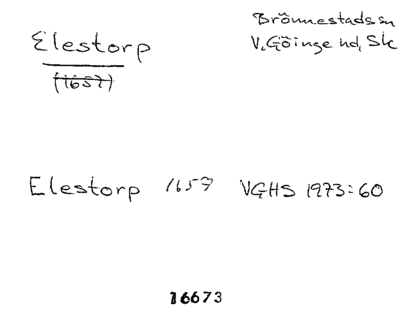 Elestorp
(1657)
Brönnestads sn
V. Göinge hd, Sk
Elestorp 1657 VGHS 1973:60
16673